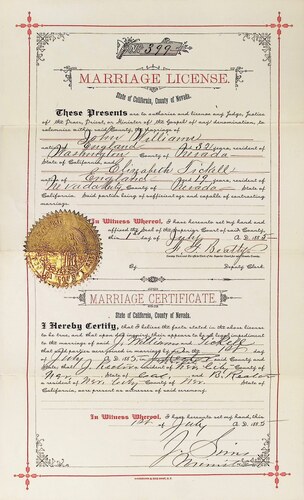 No. 399
MARRIAGE LICENSE.
State of California, County of Nevada.
These Presents are to authorize and license any Judge, Justice
of the Peace, Priest, or Minister of the Gospel of any denomination, to
solemnize within said County, the marriage of
John Williams
native of England, aged 32 years, resident of
Washington County of Nevada
State of California, and
Elizabeth
native of England aged 19 years, resident of
Nevada City County of Nevada
State of California. Said parties being of sufficient age and capable of contracting
marriage.
In Witness Whereof, I have hereunto set my hand and
affixed the Seal of the Superior Court of said County,
this 1st day of July A.D. 1885
Beatty
County Clerk and Ex-officio Clerk of the Superior Court in and for said County.
By
Deputy Clerk.
MARRIAGE CERTIFICATE.
State of California, County of Nevada.
I Hereby Certify, that I believe the facts stated in the above license
to be true, and that upon due inquiry there appears to be no legal impediment
to the marriage of said J. Williams and
that said parties were joined in marriage by me on the 1st day
of July A.D. 1885, in said County and
State; that J. resident of Nev. City County of
Nev. State of and B.
a resident of Nev. City County of Nev. State of
California, were present as witnesses of said ceremony.
In Witness Whereof, I have hereunto set my hand, this
1st July A.D. 1885
J. Sims